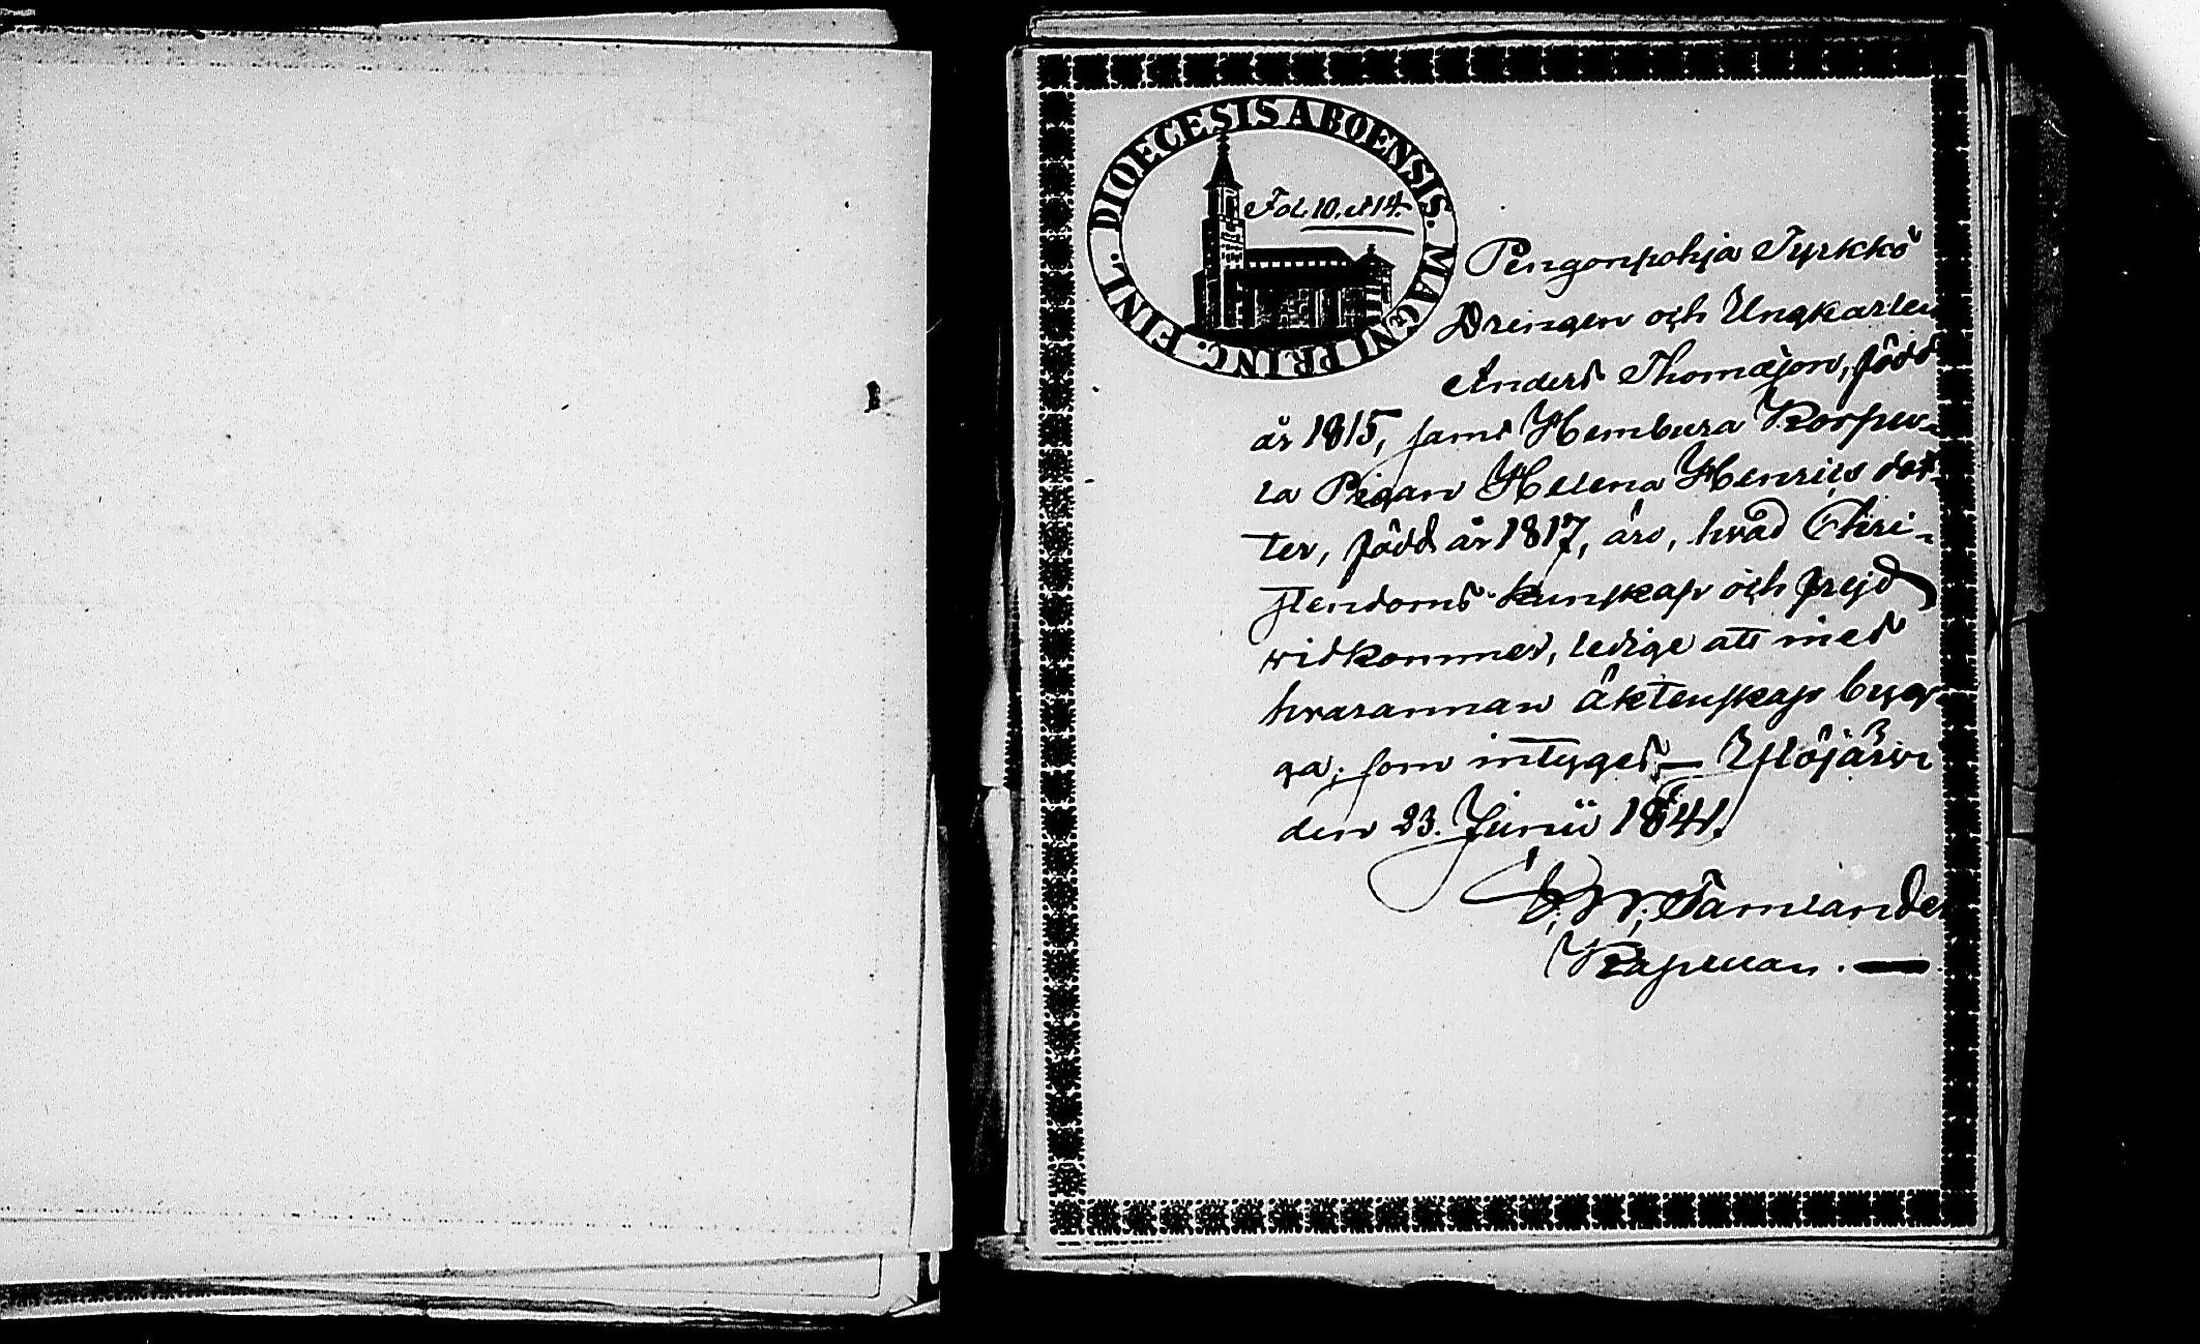 DIOECESIS ABOENSIS. MAGNI PRINC. FINL.
Fol. 10. et 14.
Pengonpohja Tyrkkö
Drengen och Ungkarlen
Anders Thomasson, född
år 1815, samt Hembura Korpew-
la Pigan Helena Henrics dot-
ter, född år 1817, äro, hvad Chri-
stendoms kunskap och frejd
widkommer, ledige att med
hvarannan äktenskap byg-
ga; som intygas — Ylöjärvi
den 23. Junii 1841.
Tamlander
Kapellan. —